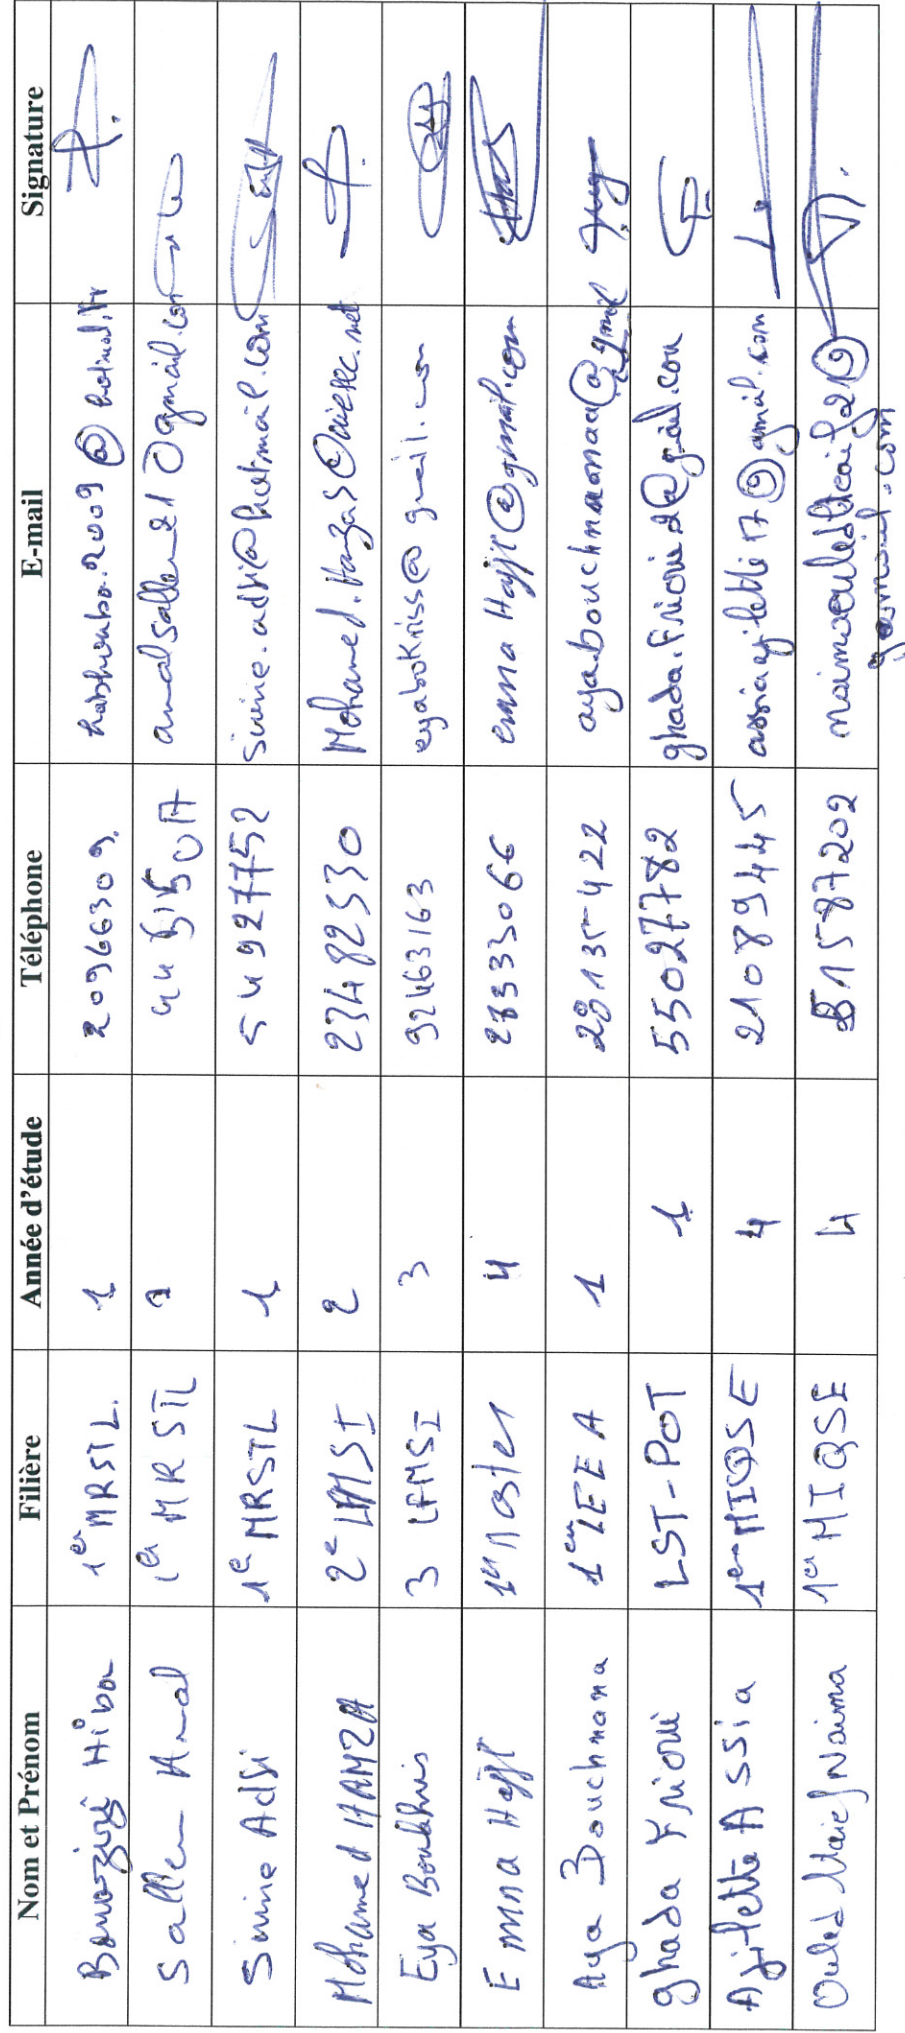 Nom et Prénom Filière Année d'étude Téléphone E-mail Signature
Bouazizi Hiba 1er MRSTL. 1 20966309
Sallem Amal 1er MRSTL 1 amalsallem21@gmail.com
Sirine Adsi 1e MRSTL 1 54927752 sirine.adsi@hotmail.com
Mohamed HAMZA 2e LAMSI 2 23482530 Mohamed.Hamza5@aiesec.net
Eya Boukhris 3 LAMSI 3 92463163 eyabokriss@gmail.com
Emna Hajji 1er Master 4 23333066 emna Hajji@gmail.com
Aya Bouchnana 1er IEEA 1 28135422
Ghada Frioui LST-POT 1 55027782 ghada.Frioui2@gmail.com
Ajilette Assia 1er MIQSE 4 21089445 assiaajilette17@gmail.com
Ouled Naima 1er MIQSE 4 51587202
gmail.com